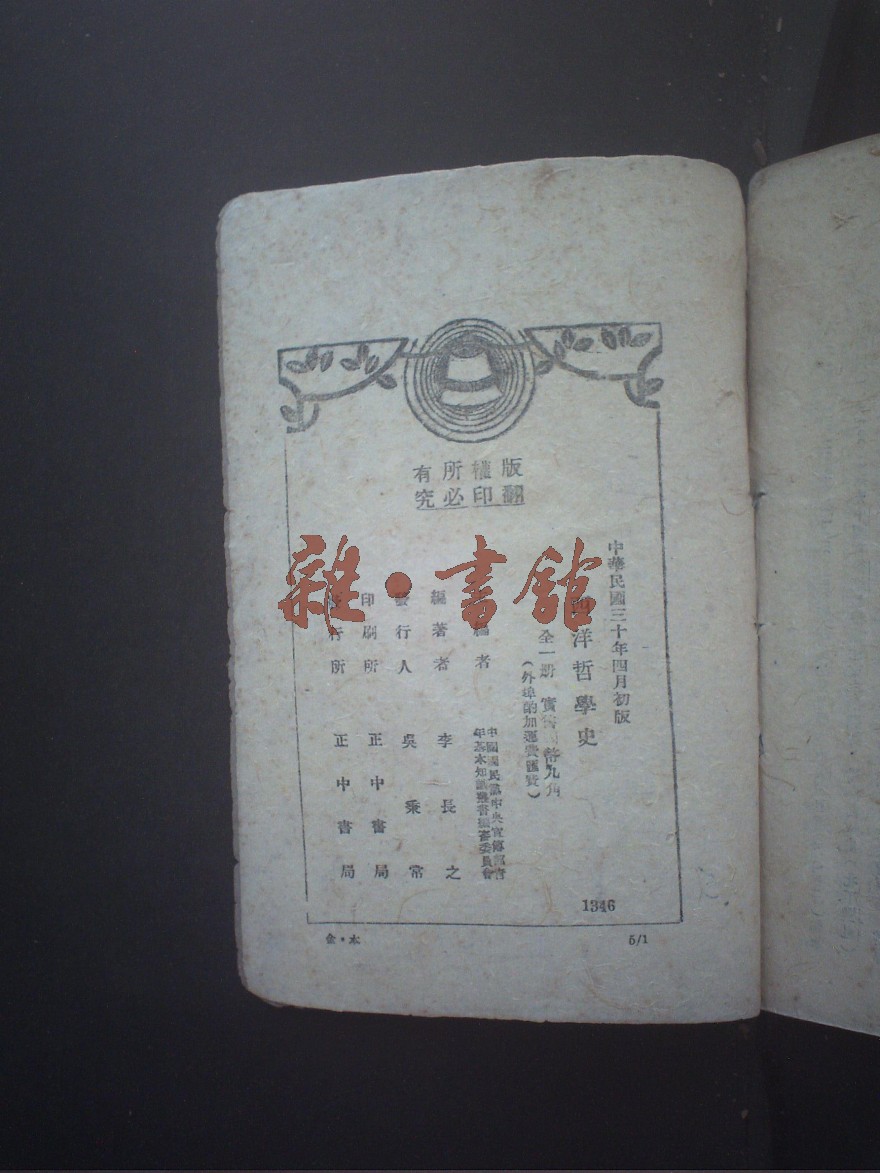 版權所有
翻印必究
中華民國三十年四月初版
西洋哲學史
全一册 實價國幣九角
(外埠酌加運費匯費)
編者
中國國民黨中央宣傳部青
年基本知識叢書編審委員會
編著者 李長之
發行人 吳秉常
印刷所 正中書局
發行所 正中書局
1346
金·木
5/1
雜·書館